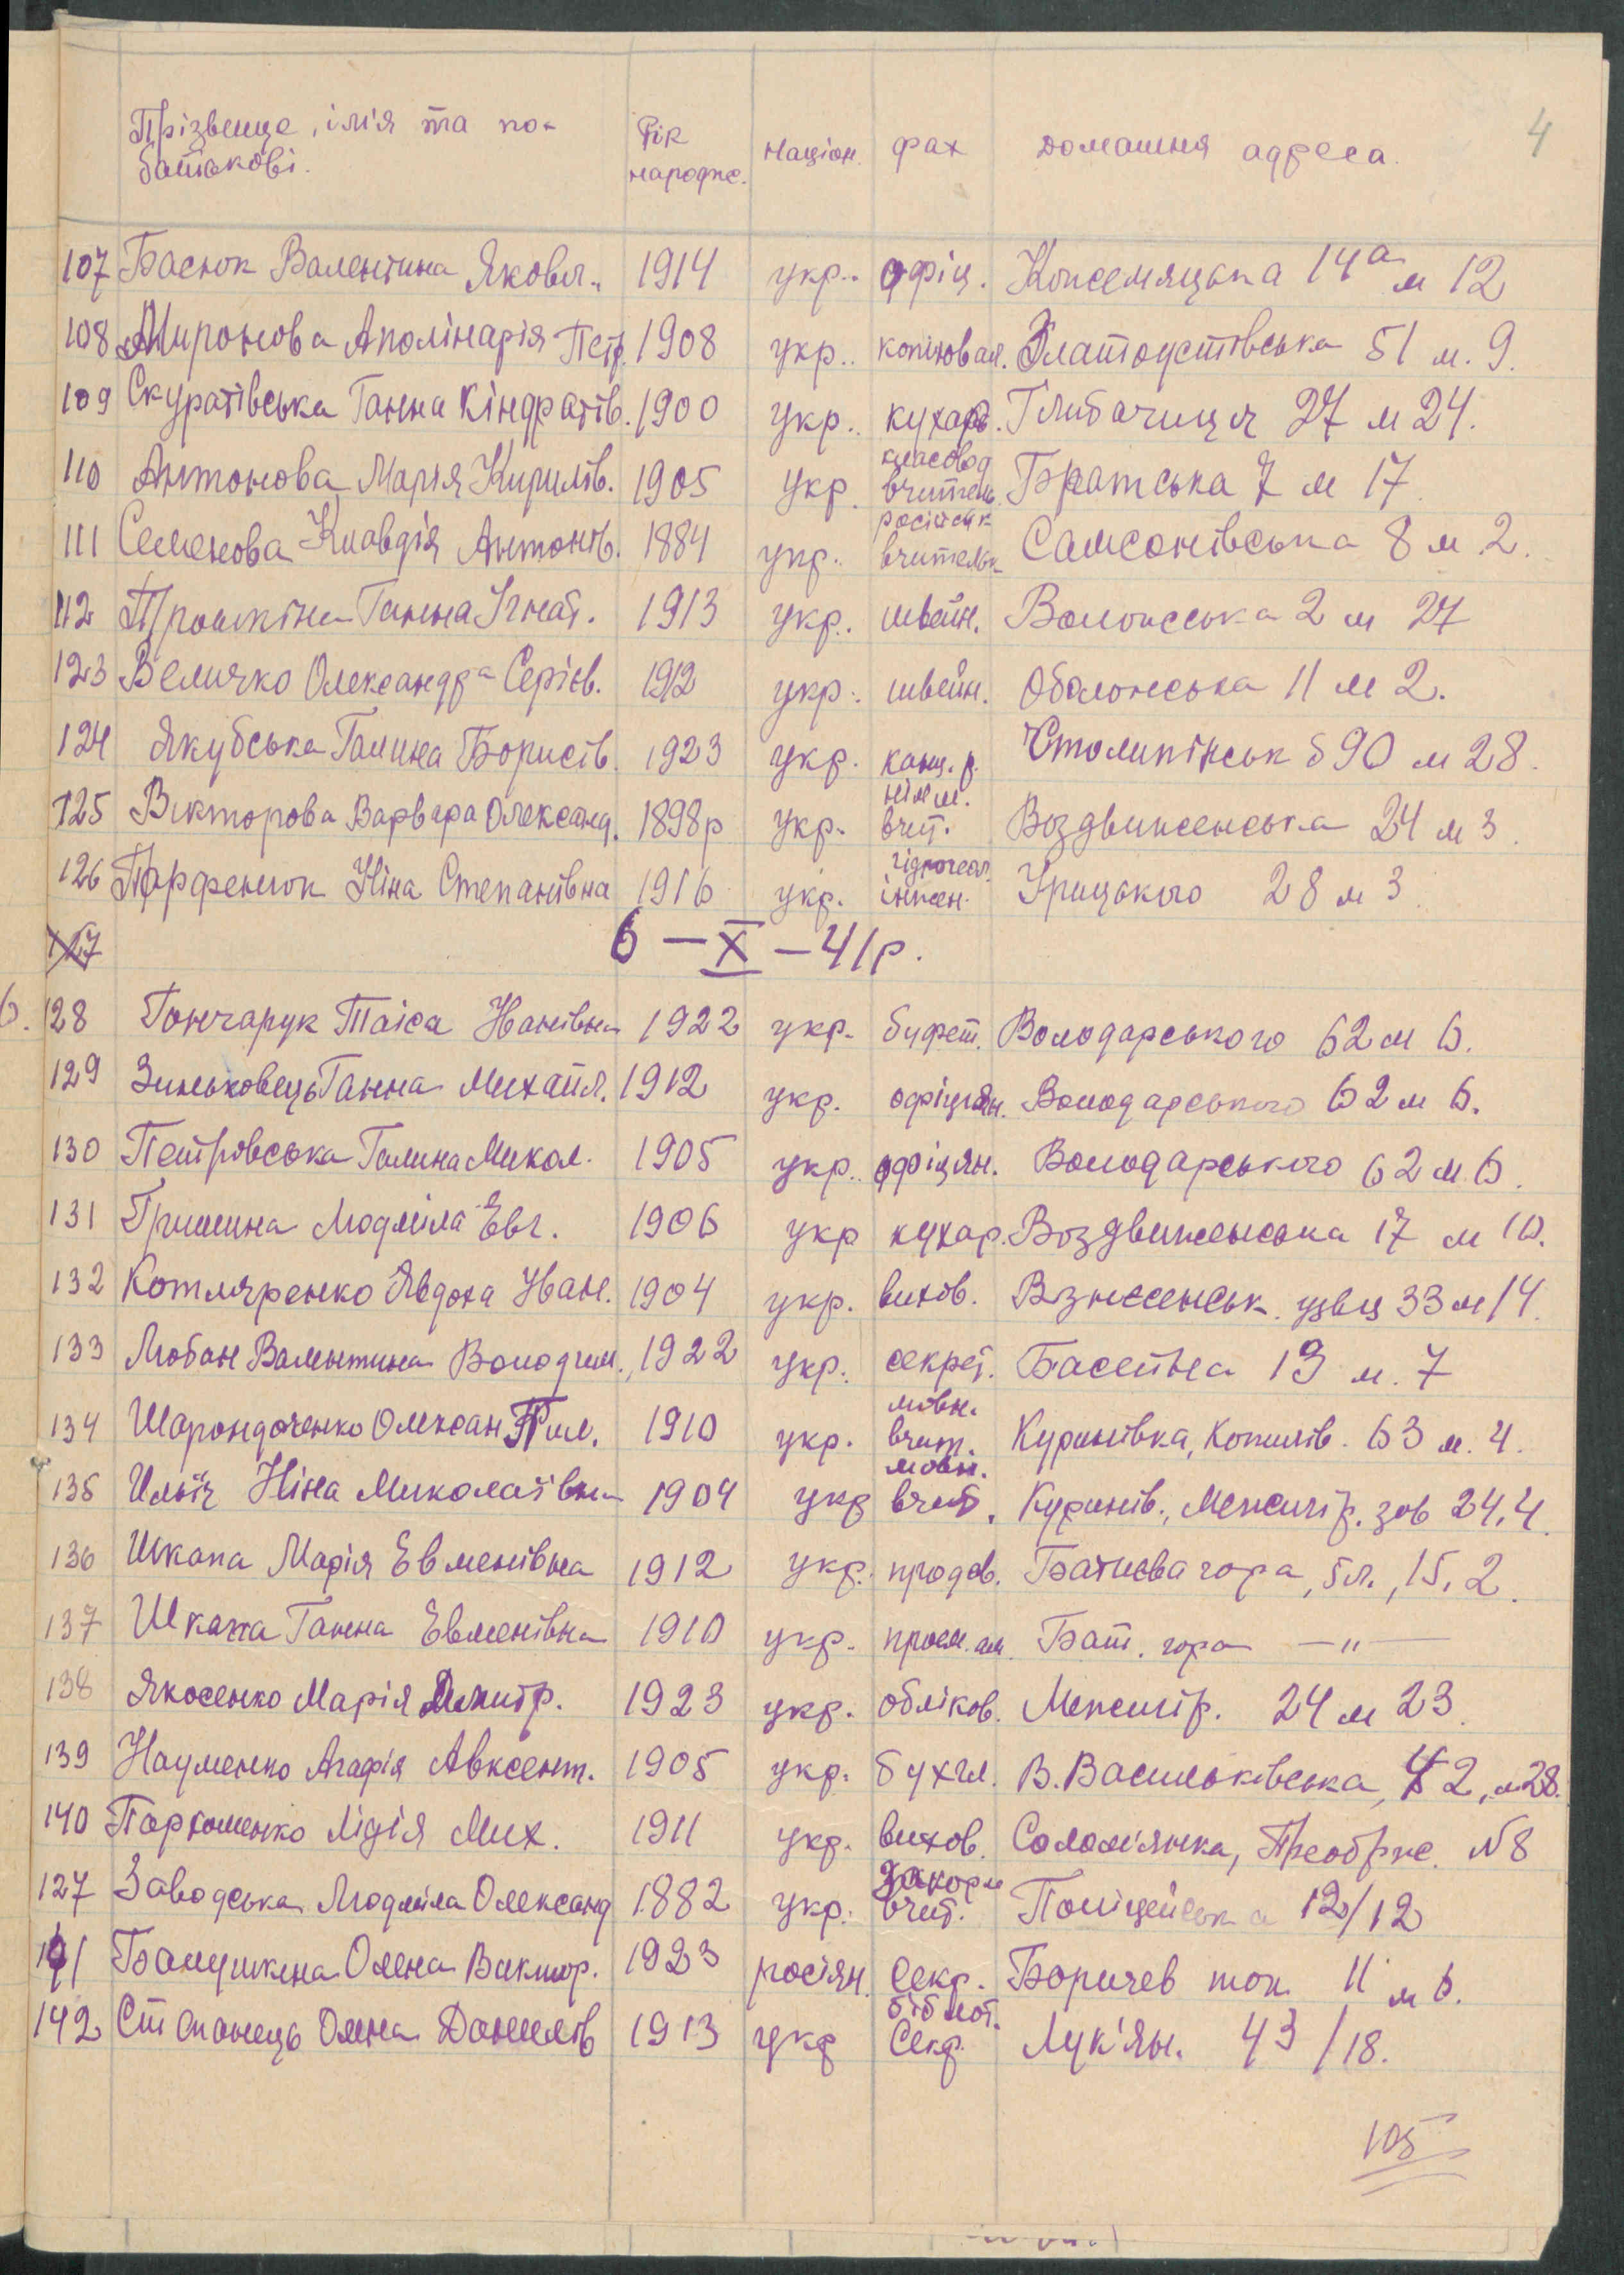 4
Прізвеще, імія та по-батькові. Рік народже. націон. фах домашня адреса.
107 Баснок Валентина Яковл. 1914 укр. офіц. Кожемяцька 14а м 12
108 Миронова Аполінарія Петр. 1908 укр. копіювал. Златоустівська 51 м. 9.
109 Скуратівська Ганна Кіндратів. 1900 укр. кухар. Глибочиця 27 м 24.
110 Антонова Марія Кирилів. 1905 укр. класовод вчитель Братська 7 м 17
111 Семенова Клавдія Антонів. 1884 укр. російськ вчительк Самсонівська 8 м 2.
112 Прошкіна Ганна Ігнат. 1913 укр. швейн. Волоська 2 м 27
123 Величко Олександра Сергієв. 1912 укр. швейн. Оболонська 11 м 2.
124 Якубська Галина Борисів. 1923 укр. канц. р. Столипінськ 90 м 28.
125 Вікторова Варвара Олександ. 1898р укр. нім м. вчит. Воздвиженська 24 м 3
126 Парфенюк Ніна Степанівна 1916 укр. гідрогеол. інжен. Урицького 28 м 3
127
6 – X – 41 р.
6. 128 Гончарук Таіса Іванівна 1922 укр. буфет. Володарського 62 м 6.
129 Зиньковець Ганна Михайл. 1912 укр. офіціян. Володарського 62 м 6.
130 Петровська Галина Микол. 1905 укр. офіціян. Володарського 62 м 6.
131 Гришина Людміла Евг. 1906 укр кухар. Воздвиженська 17 м 10.
132 Котляренко Явдоха Іван. 1904 укр. вихов. Вознесенськ. узвіз 33 м 14.
133 Любан Валентина Володим. 1922 укр. секрет. Басейна 13 м. 7
134 Олексан Пил. 1910 укр. мовн. вчит. Куринівка, Копилів. 63 м. 4.
135 Ильїч Ніна Миколаївна 1904 укр мовн. вчит. Куринів., Межигір. 24, 4.
136 Шкапа Марія Евменівна 1912 укр. продав. Батиєва гора, 5 л., 15, 2.
137 Шкапа Ганна Евменівна 1910 укр. Бат. гора –"–
138 Якосенко Марія Дмитр. 1923 укр. обліков. Межигір. 24 м 23.
139 Науменко Агафія Авксент. 1905 укр. бухгл. В. Васильківська, 42, м 28.
140 Пархоменко Лідія Мих. 1911 укр. вихов. Солом'янка, Преображ. N 8
127 Заводська Людміла Олександ 1882 укр. вчит. Поліцейська 12/12
141 Балушкина Олена Виктор. 1923 росіян. Секр. Боричев ток 11 м 6.
142 Степанець Олена Данилів 1913 укр бібліот. Секр. Лук'ян. 43/18.
105